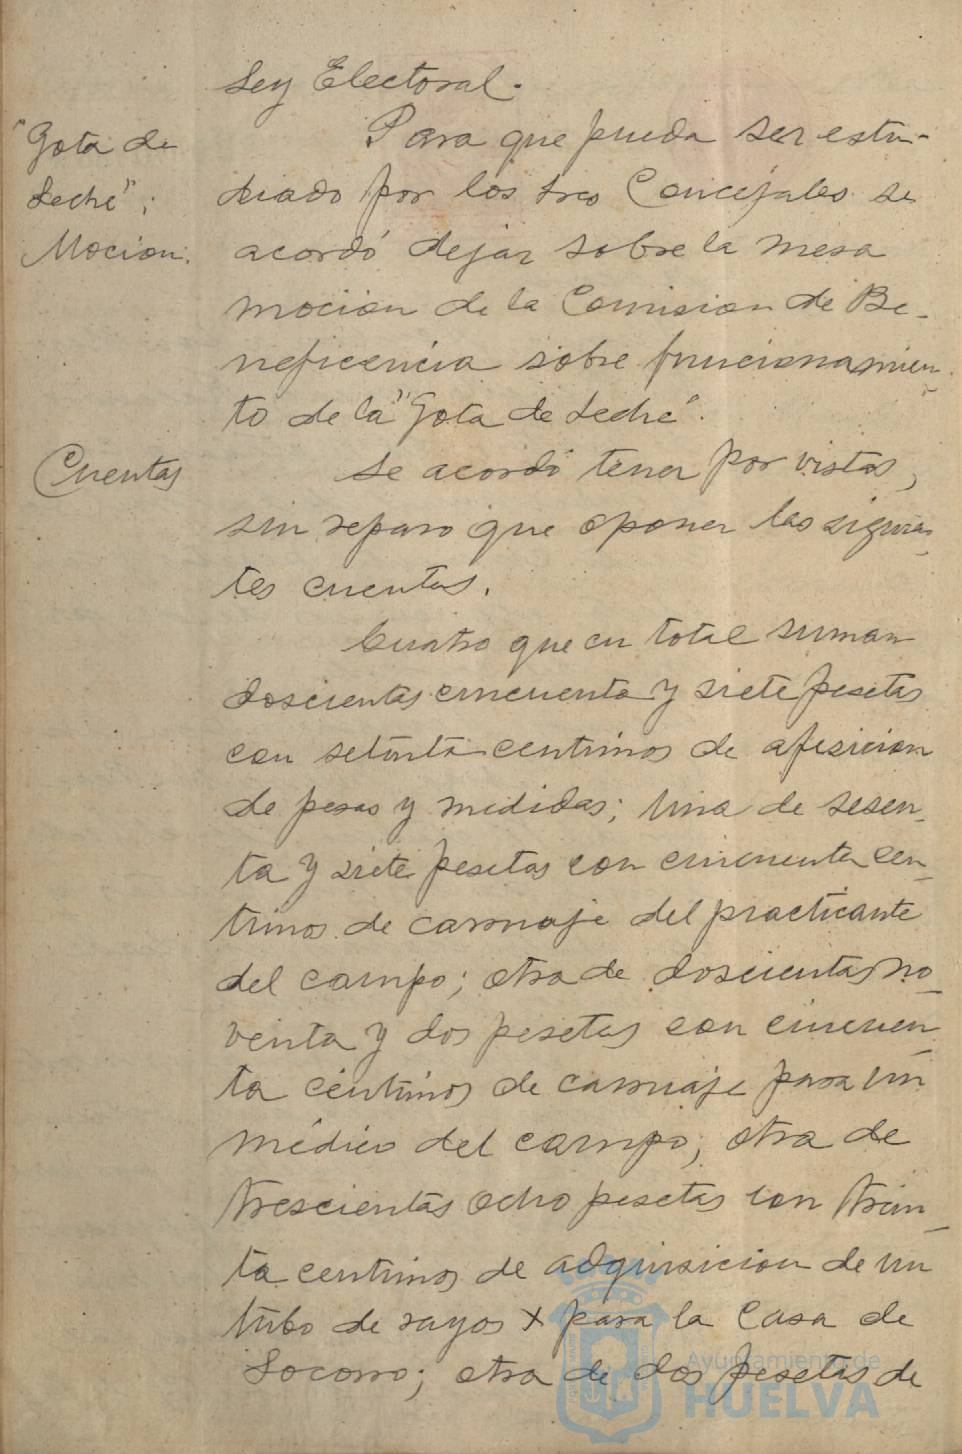 Ley Electoral.
"Gota de
Leche";
Mocion.
Para que pueda ser estu-
diado por los tres Concejales se
acordó dejar sobre la mesa
mocion de la Comision de Be-
neficencia sobre funcionamien-
to de la "Gota de Leche".
Cuentas
Se acordó tener por vistas,
sin reparo que oponer las siguien-
tes cuentas.
Cuatro que en total suman
doscientas cincuenta y siete pesetas
con setenta centimos de afericion
de pesas y medidas; una de sesen-
ta y siete pesetas con cincuenta cen-
timos de carruaje del practicante
del campo; otra de doscientas no-
venta y dos pesetas con cincuen-
ta céntimos de carruaje para un
médico del campo; otra de
trescientas ocho pesetas con trein-
ta centimos de adquisicion de un
tubo de rayos X para la Casa de
Socorro; otra de dos pesetas de
Ayuntamiento de
HUELVA